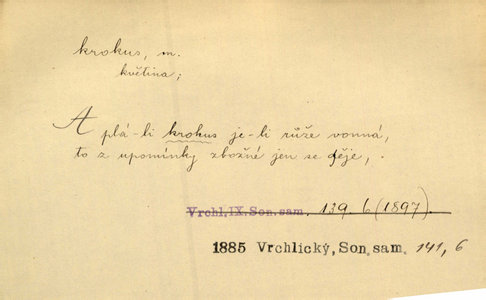 krokus, m.
květina;
A plá-li krokus je-li růže vonná,
to z upomínky zbožné jen se děje, .
Vrchl. IX. Son. sam. 139. 6 (1897).
1885 Vrchlický, Son. sam. 141, 6